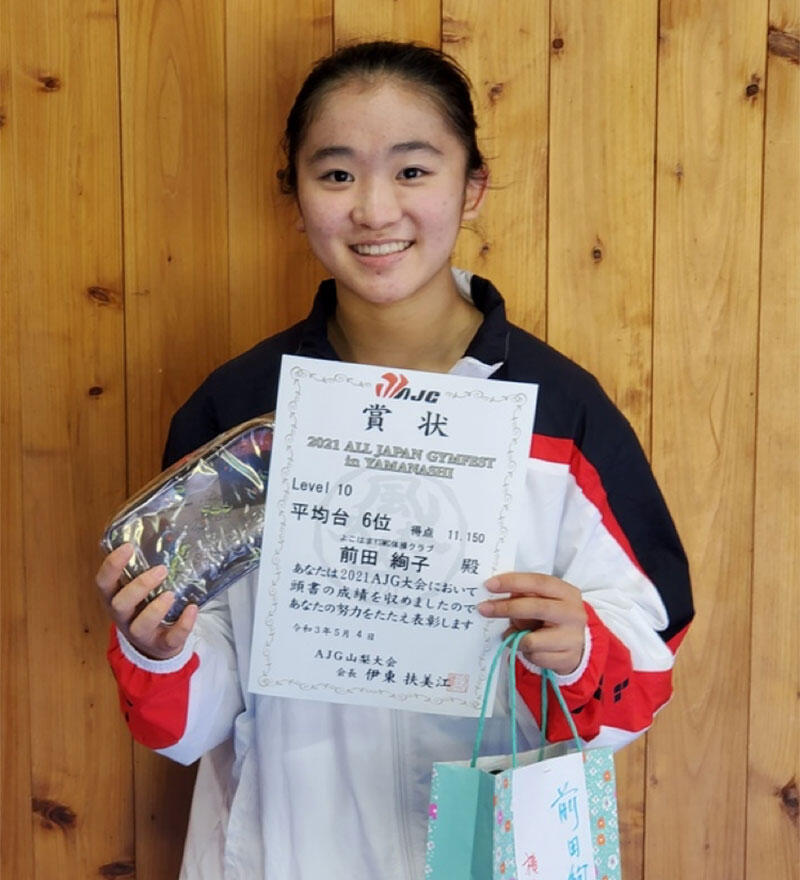 AJG
賞状
2021 ALL JAPAN GYMFEST
in YAMANASHI
Level 10
平均台 6位 得点 11.150
体操クラブ
前田 絢子 殿
あなたは2021AJG大会において
頭書の成績を収めましたので
あなたの努力をたたえ表彰します
令和3年5月4日
AJG山梨大会
会長 伊東 扶美江
前田絢